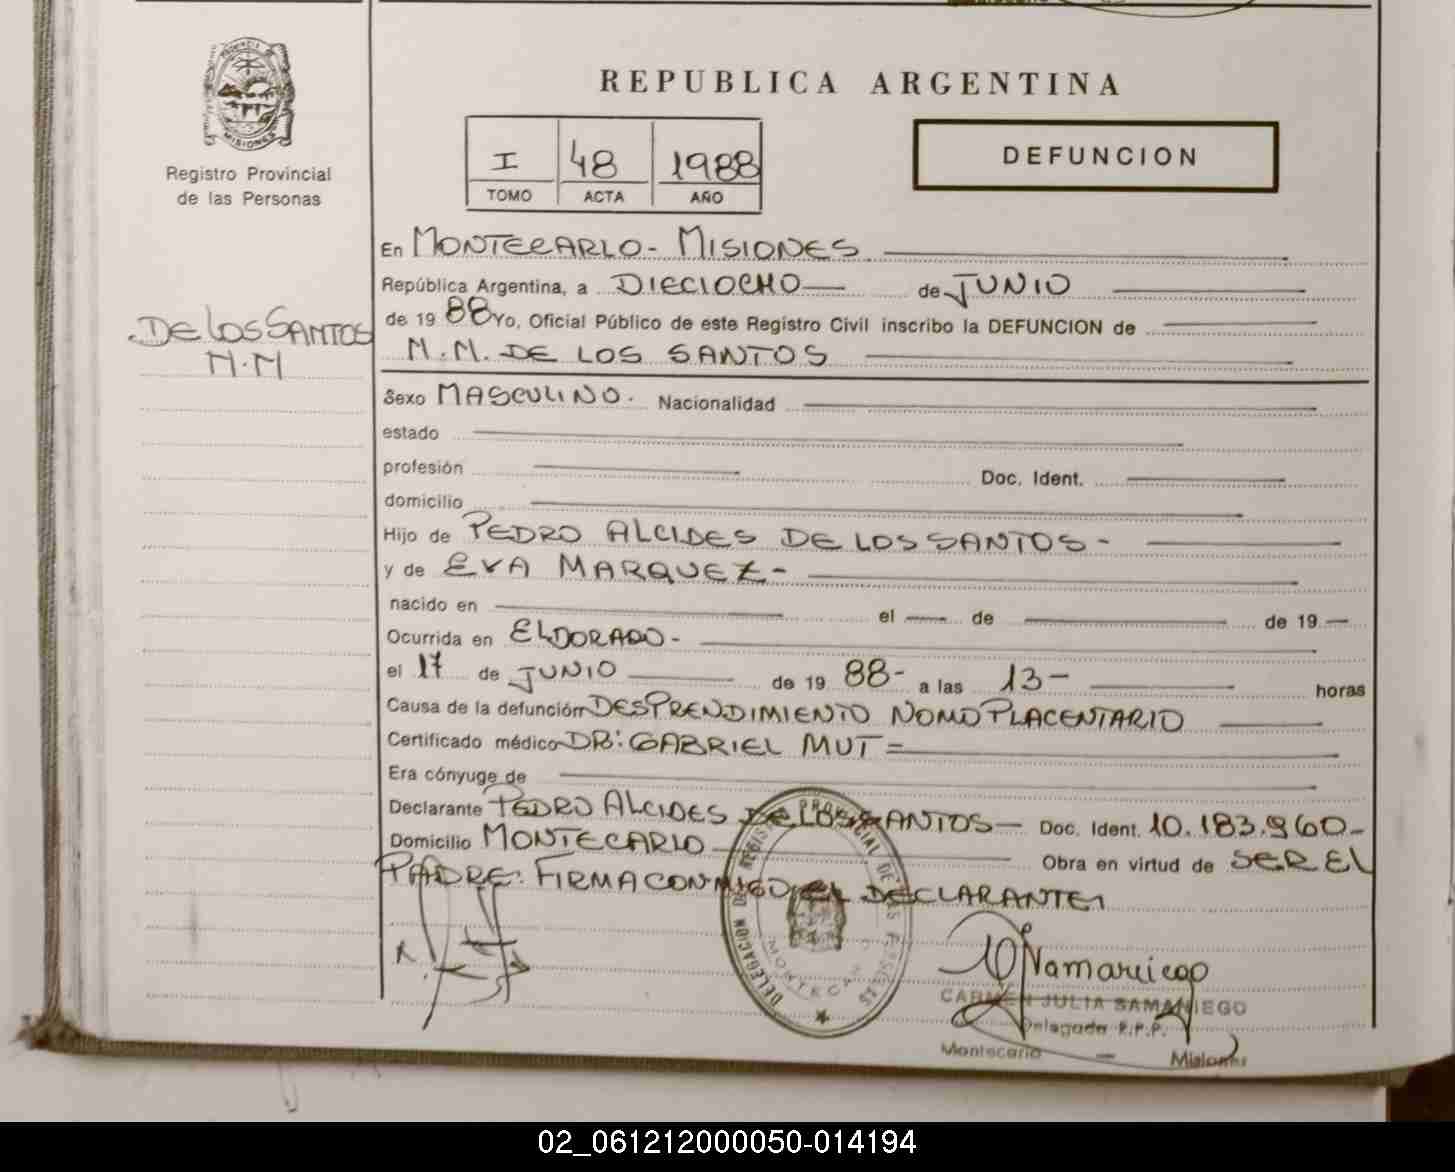 PROVINCIA DE MISIONES
Registro Provincial
de las Personas
REPUBLICA ARGENTINA
I 48 1988
TOMO ACTA AÑO
DEFUNCION
DE LOS SANTOS
M.M
En MONTECARLO - MISIONES
República Argentina, a DIECIOCHO de JUNIO
de 19 88 Yo, Oficial Público de este Registro Civil inscribo la DEFUNCION de
M.M. DE LOS SANTOS
Sexo MASCULINO. Nacionalidad
estado
profesión Doc. Ident.
domicilio
Hijo de PEDRO ALCIDES DE LOS SANTOS -
y de EVA MARQUEZ -
nacido en el de de 19
Ocurrida en ELDORADO -
el 17 de JUNIO de 19 88- a las 13- horas
Causa de la defunción DESPRENDIMIENTO NOMO PLACENTARIO
Certificado médico DR: GABRIEL MUT =
Era cónyuge de
Declarante PEDRO ALCIDES DE LOS SANTOS - Doc. Ident. 10.183.960-
Domicilio MONTECARLO Obra en virtud de SER EL
PADRE: FIRMA CONMIGO EL DECLARANTE
DELEGACION DEL REGISTRO PROVINCIAL DE LAS PERSONAS
MONTECARLO
CARMEN JULIA SAMANIEGO
Delegada R.P.P.
Montecarlo - Misiones
02_061212000050-014194